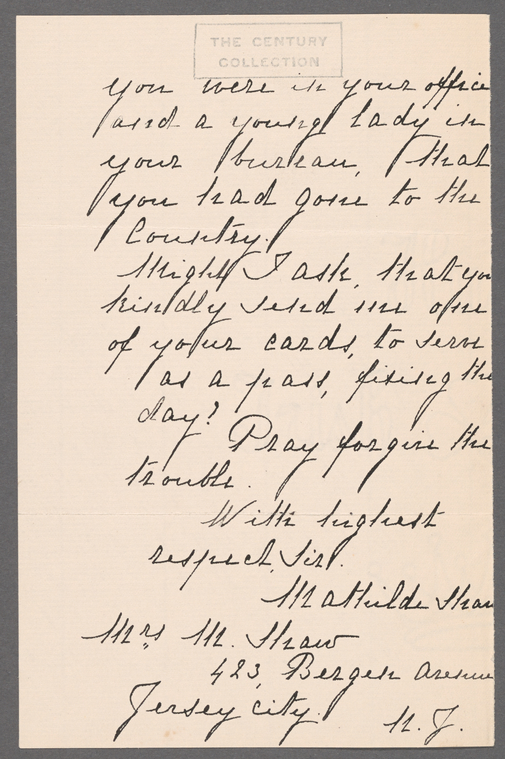 THE CENTURY
COLLECTION
you were in your office
and a young lady in
your bureau, that
you had gone to the
Country.
Might I ask, that you
kindly send me one
of your cards, to serve
as a pass, fixing the
day?
Pray forgive the
trouble.
With highest
respect, Sir.
Mathilde Shaw
Mrs M. Shaw
423, Bergen Avenue
Jersey City.
N. J.